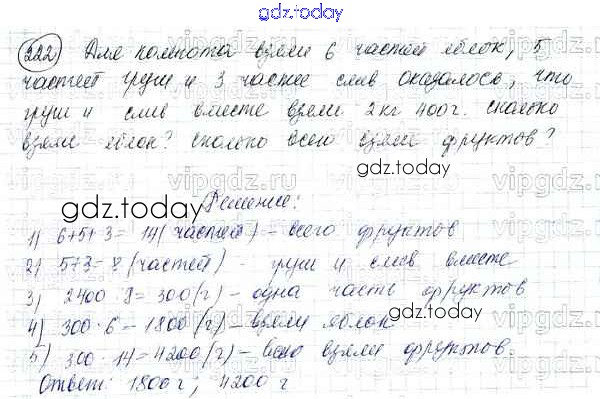 gdz.today
222 Для компота взяли 6 частей яблок, 5
частей груш и 3 части слив оказалось, что
груш и слив вместе взяли 2 кг 400 г. сколько
взяли яблок? сколько всего взяли фруктов?
gdz.today
Решение:
gdz.today
1) 6+5+3=14 (частей) - всего фруктов
2) 5+3=8 (частей) - груш и слив вместе
3) 2400:8=300(г) - одна часть фруктов
4) 300·6=1800(г) - взяли яблок
gdz.today
5) 300·14=4200(г) - всего взяли фруктов.
Ответ: 1800г; 4200 г
gdz.today